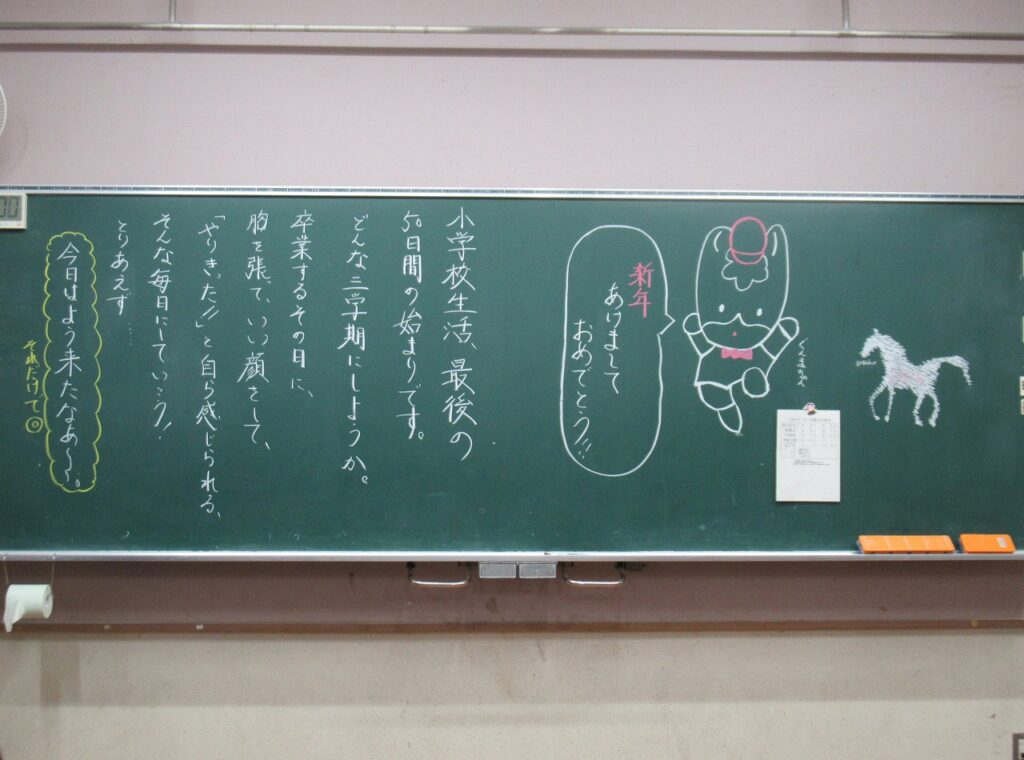 ぐんまちゃん
新年
あけまして
おめでとう!!
小学校生活、最後の
50日間の始まりです。
どんな三学期にしようか。
卒業するその日に、
胸を張って、いい顔をして、
「やりきった!!」と自ら感じられる、
そんな毎日にしていこう!
とりあえず…
今日はよう来たなあ~~。
それだけで◎
00